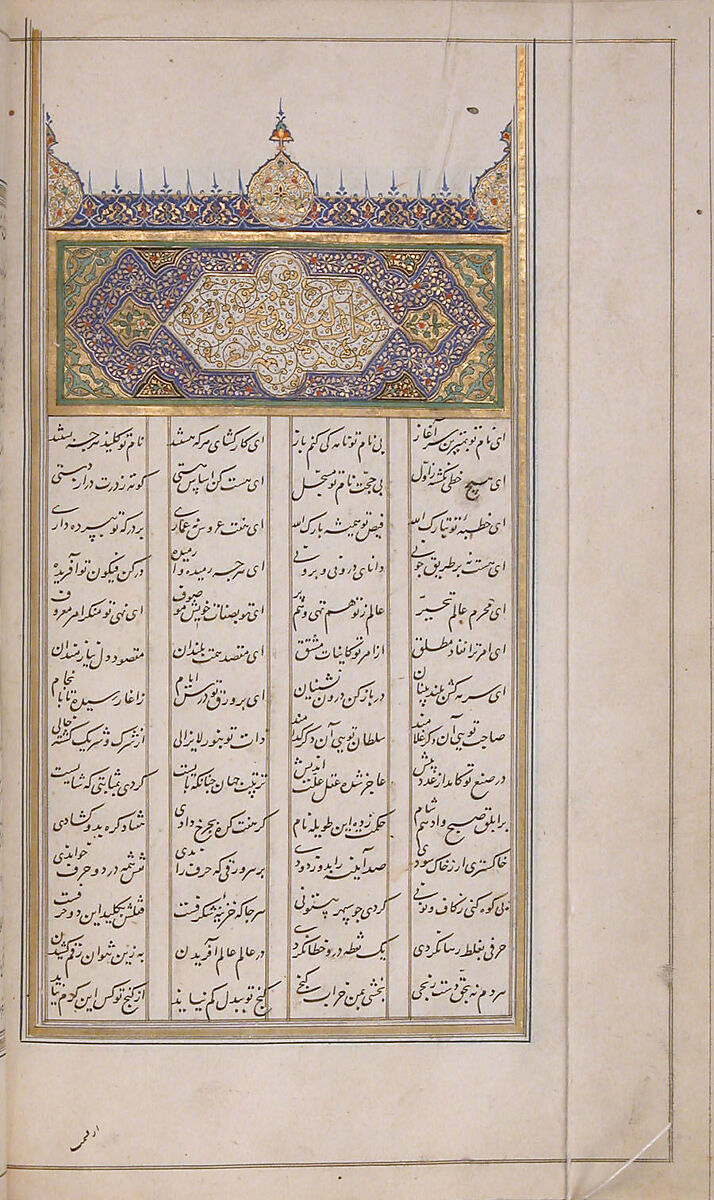 کتاب لیلی و مجنون
ای نام تو بهترین سرآغاز بی نام تو نامه کی کنم باز ای کارگشای هرکه هستند نام تو کلید هرچه بستند
ای هیچ خطی نگشته ز اول بی حجت نام تو مسجل ای هست کن اساس هستی کوته ز درت دراز دستی
ای خطبهٔ تو تبارک الله فیض تو همیشه بارک الله ای هفت عروس نه عماری بر درگه تو بپرده داری
ای هست نه بر طریق چونی دانای درونی و برونی ای هرچه رمیده و آرمیده در کن فیکون تو آفریده
ای محرم عالم تحیر عالم ز تو هم تهی و هم پر ای تو بصفات خویش موصوف ای نهی تو منکر امر معروف
ای امر ترا نفاذ مطلق از امر تو کاینات مشتق ای مقصد همت بلندان مقصود دل نیازمندان
ای سرمه کش بلند بینان در باز کن درون نشینان ای بر ورق تو درس ایام زآغاز رسیده تا بانجام
صاحب تویی آن دگر غلامند سلطان تویی آن دگر کدامند ذات تو بنور لایزالی از شرک و شریک گشته خالی
در صنع تو کامد از عدد بیش عاجز شده عقل علت اندیش ترتیب جهان چنانکه بایست کردی بمثابتی که شایست
بر ابلق صبح و ادهم شام حکمت زده این طویله نام گر هفت گره بچرخ دادی هفتاد گره بدو گشادی
خاکستری ار ز خاک سودی صد آینه را بدو زدودی بر هر ورقی که حرف راندی نقش همه در دو حرف خواندی
بی کوه کنی ز کاف و نونی کردی چو سپهر بیستونی هرجا که خزینهٔ شگرفست قفلش بکلید این دو حرفست
حرفی بغلط رها نکردی یک نقطه درو خطا نکردی در عالم عالم آفریدن به زین نتوان رقم کشیدن
هر دم نه بحق دست رنجی بخشی بمن خراب گنجی گنج تو ببذل کم نیاید از گنج تو کس این کرم نیاید
از قسمت